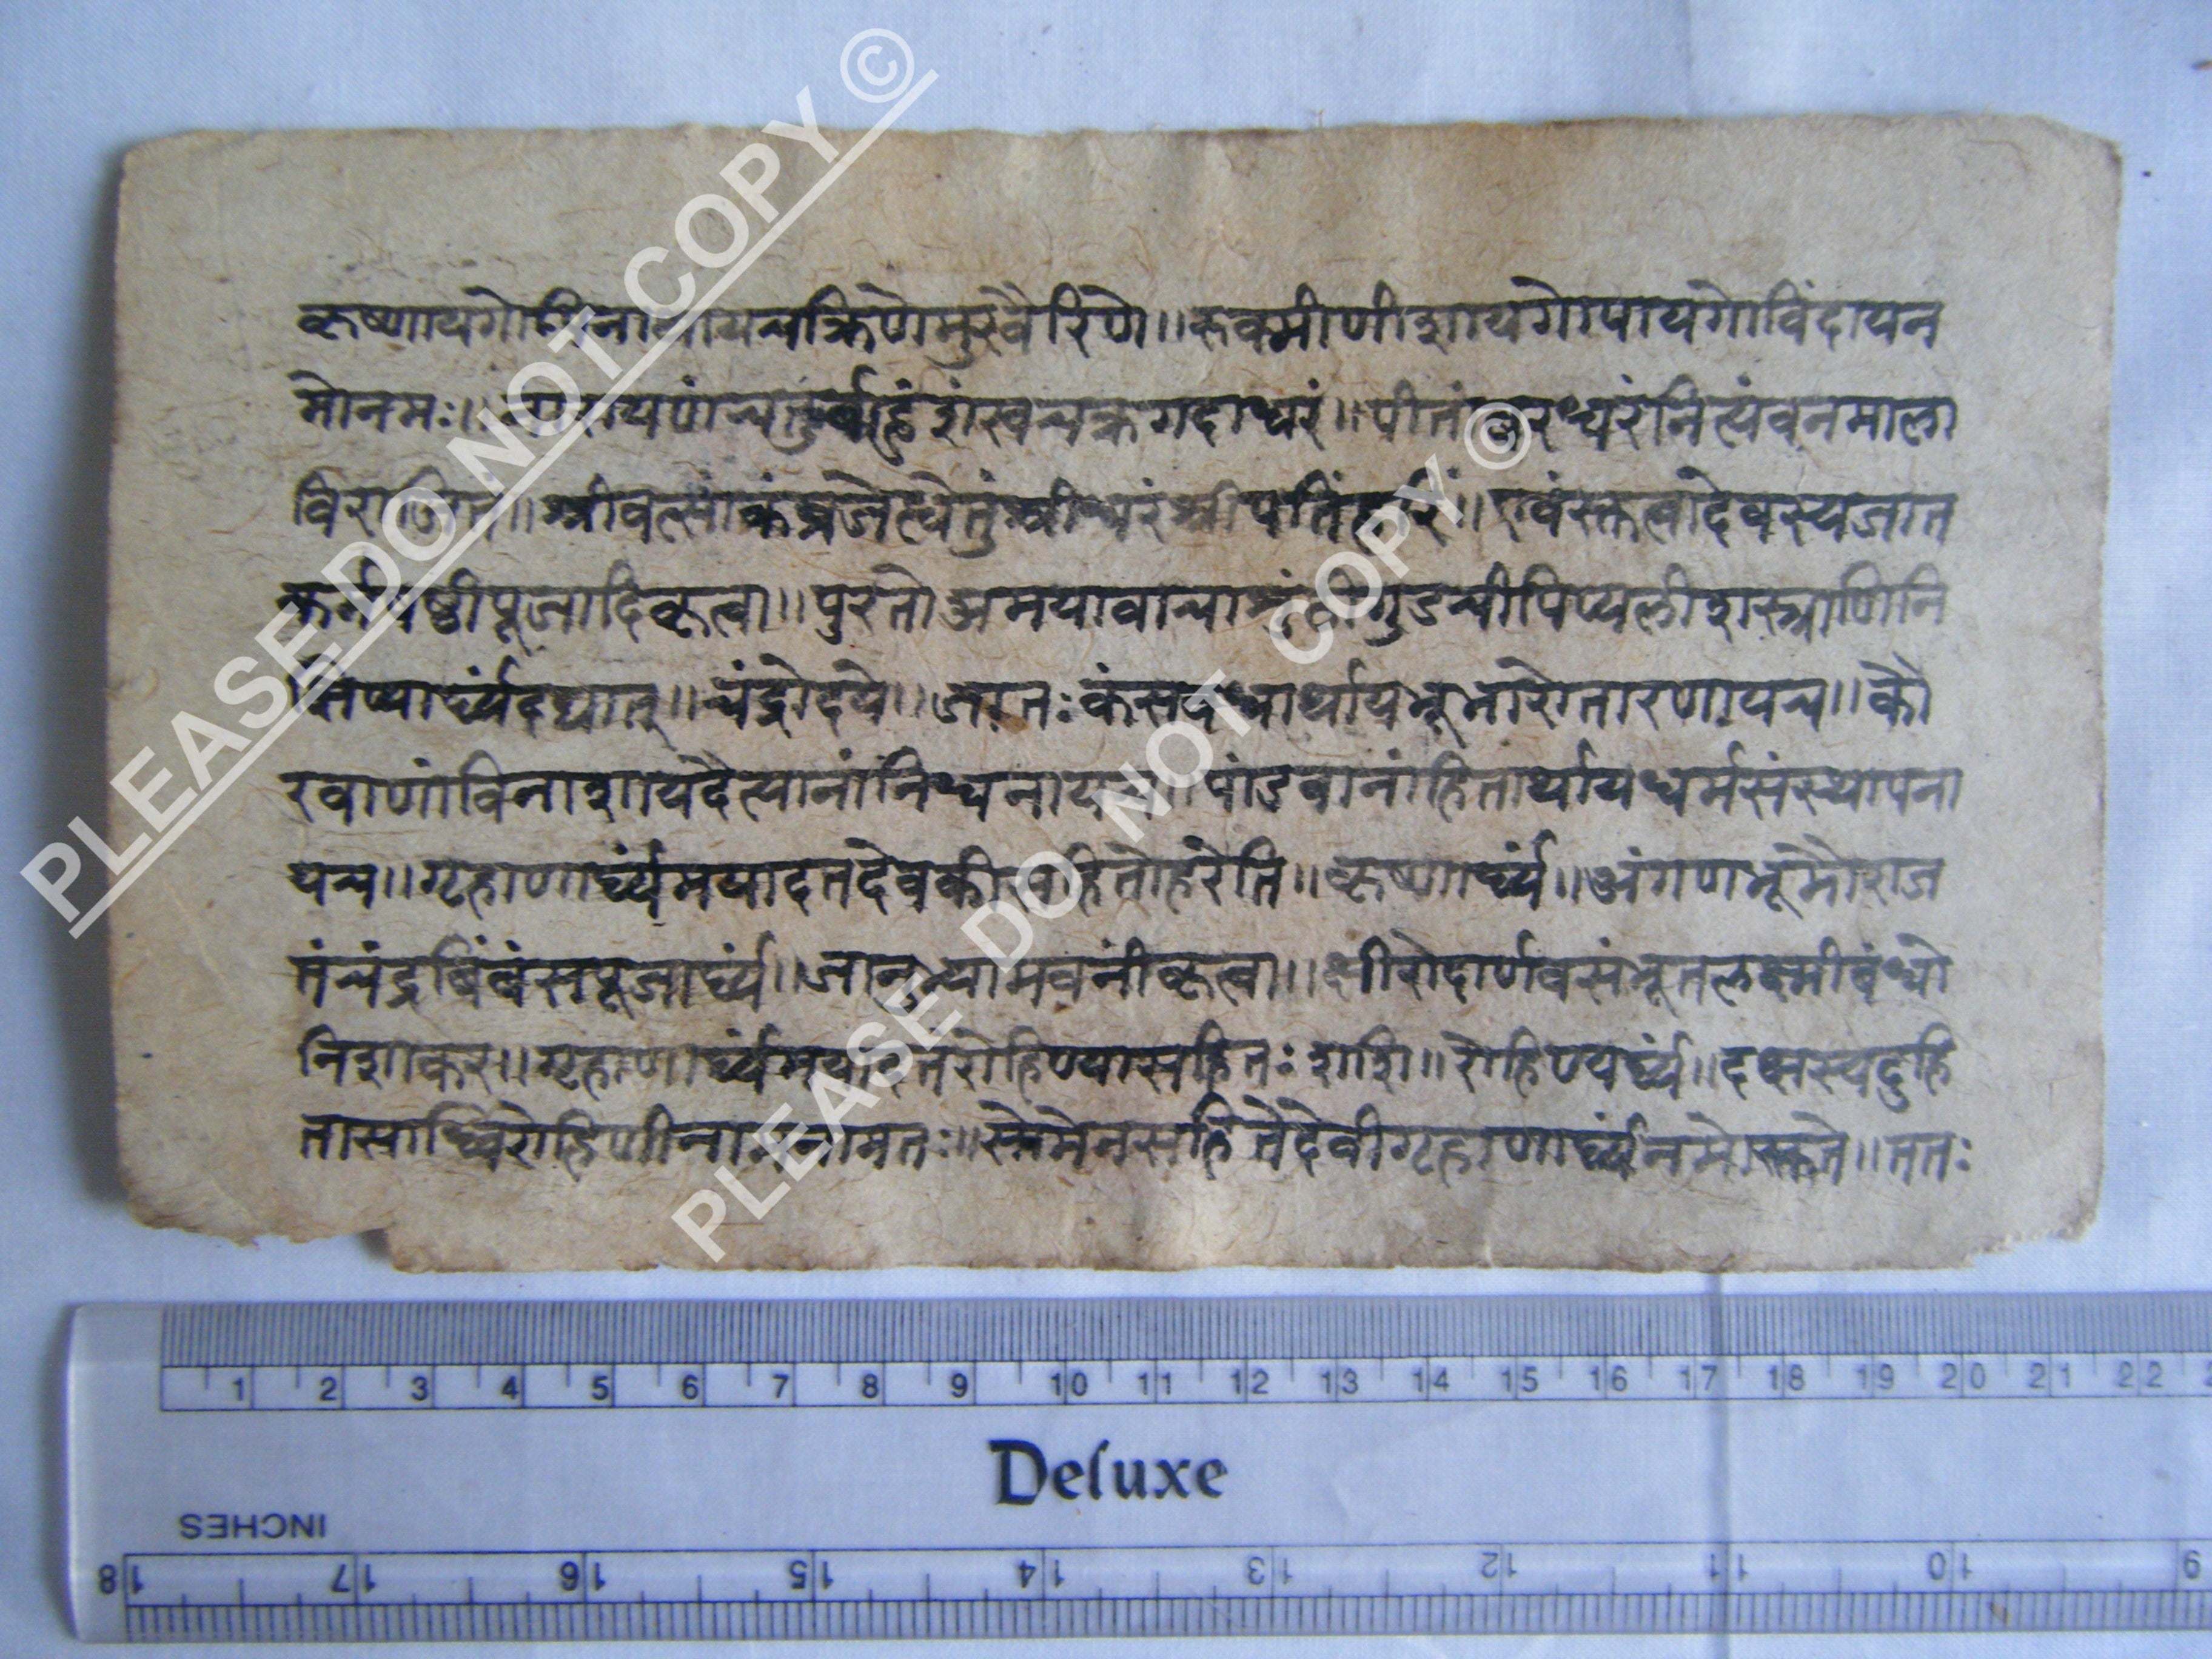 कृष्णायगोपीनाथायचक्रिणेमुरवैरिणे॥रुक्मीणीशायगोपायगोविंदायन
मोनमः॥नारायणंचतुर्बाहुंशंखचक्रगदाधरं॥पीतंबरधरंनित्यंवनमाला
विराजितं॥श्रीवत्सांकंव्रजेत्येतुंश्रीधरंश्रीपतिंहरिं॥एवंस्तुत्वादेवस्यजात
कर्मषष्ठीपूजादिकृत्वा॥पुरतोअमयावाचाश्रंवीगुडचीपिप्पलीशस्त्राणिनि
क्षिप्यार्घ्यंदद्यात्॥चंद्रोदये॥जातःकंसवधार्थायभूभारोतारणायच॥कौ
रवाणांविनाशायदैत्यानांनिधनायच॥पांडवानांहितार्थायधर्मसंस्थापना
यच॥गृहाणार्घ्यंमयादतदेवकीसहितोहरेति॥कृष्णार्घ्यं॥अंगणभूमौराज
तंचंद्रबिंबंसपूजार्घ्यं॥जानुभ्यामवनींकृत्वा॥क्षीरोदार्णवसंभूतलक्ष्मीबंधो
निशाकर॥गृहाणार्घ्यंमयादतरोहिण्यासहितःशशि॥रोहिण्यर्घ्यं॥दक्षस्यदुहि
तासाध्विरोहिणीनामनामतः॥सोमेनसहितेदेवीगृहाणार्घ्यंनमोस्तुते॥ततः
PLEASE DO NOT COPY ©
PLEASE DO NOT COPY ©
1 2 3 4 5 6 7 8 9 10 11 12 13 14 15 16 17 18 19 20 21 22
Deluxe
INCHES
18 17 16 15 14 13 12 11 10 9